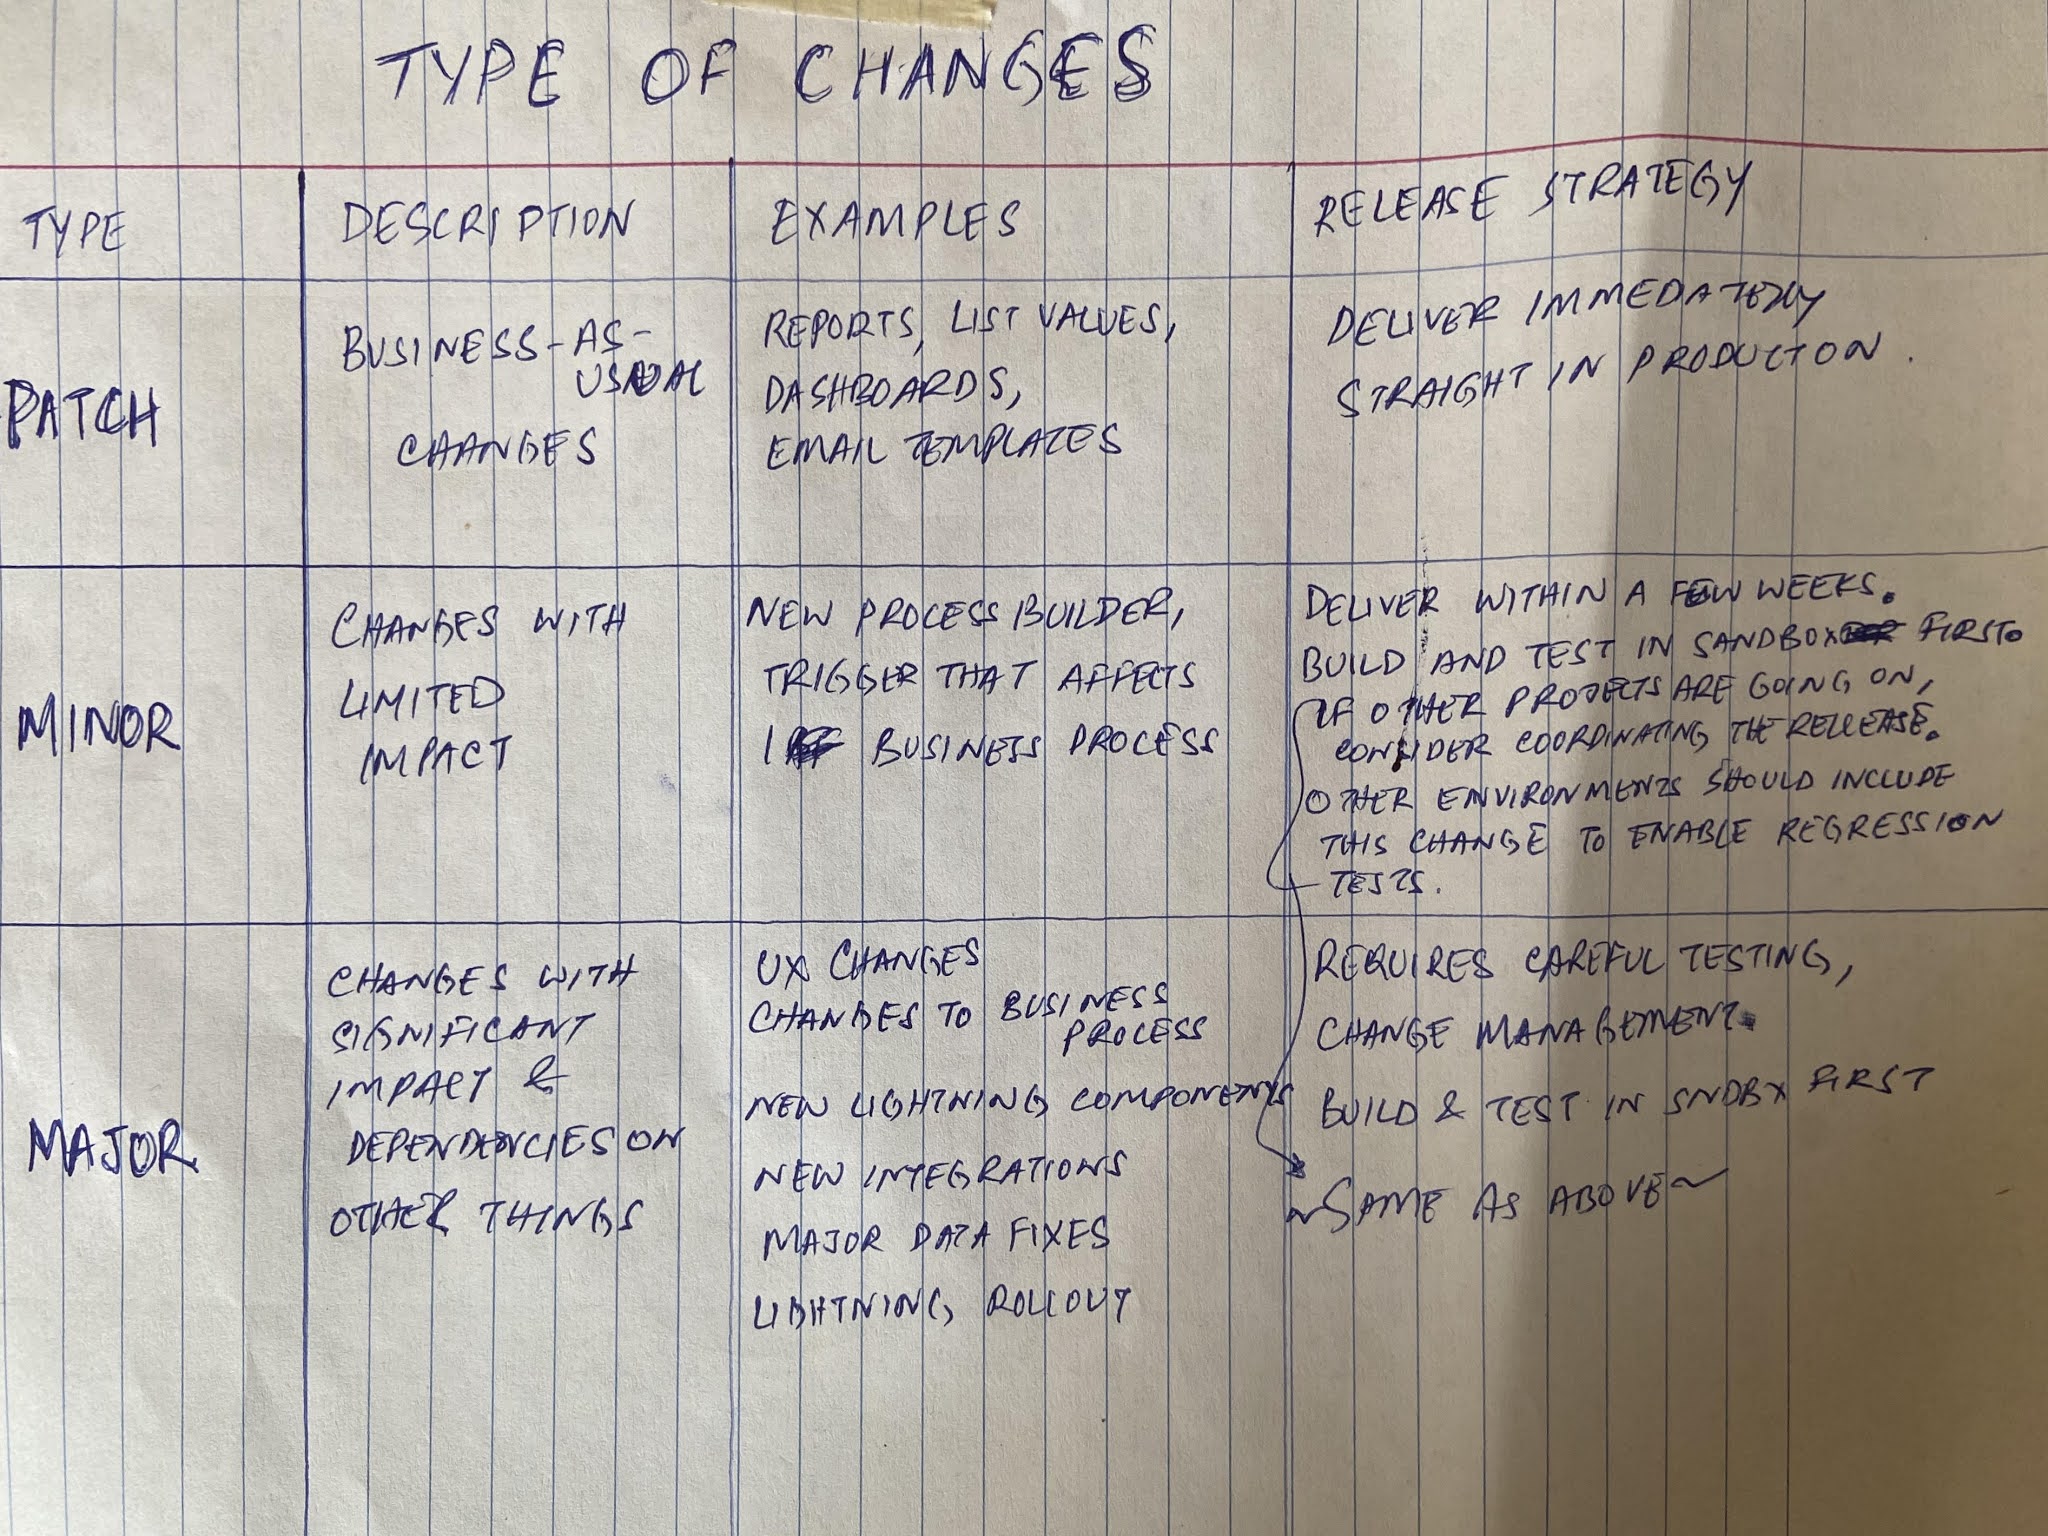 TYPE OF CHANGES
TYPE
DESCRIPTION
EXAMPLES
RELEASE STRATEGY
PATCH
BUSINESS-AS-
USUAL
CHANGES
REPORTS, LIST VALUES,
DASHBOARDS,
EMAIL TEMPLATES
DELIVER IMMEDIATELY
STRAIGHT IN PRODUCTION.
MINOR
CHANGES WITH
LIMITED
IMPACT
NEW PROCESS BUILDER,
TRIGGER THAT AFFECTS
1 BUSINESS PROCESS
DELIVER WITHIN A FEW WEEKS.
BUILD AND TEST IN SANDBOX FIRST.
IF OTHER PROJECTS ARE GOING ON,
CONSIDER COORDINATING THE RELEASE.
OTHER ENVIRONMENTS SHOULD INCLUDE
THIS CHANGE TO ENABLE REGRESSION
TESTS.
MAJOR
CHANGES WITH
SIGNIFICANT
IMPACT &
DEPENDENCIES ON
OTHER THINGS
UX CHANGES
CHANGES TO BUSINESS
PROCESS
NEW LIGHTNING COMPONENTS
NEW INTEGRATIONS
MAJOR DATA FIXES
LIGHTNING ROLLOUT
REQUIRES CAREFUL TESTING,
CHANGE MANAGEMENT.
BUILD & TEST IN SNDBX FIRST
~SAME AS ABOVE~